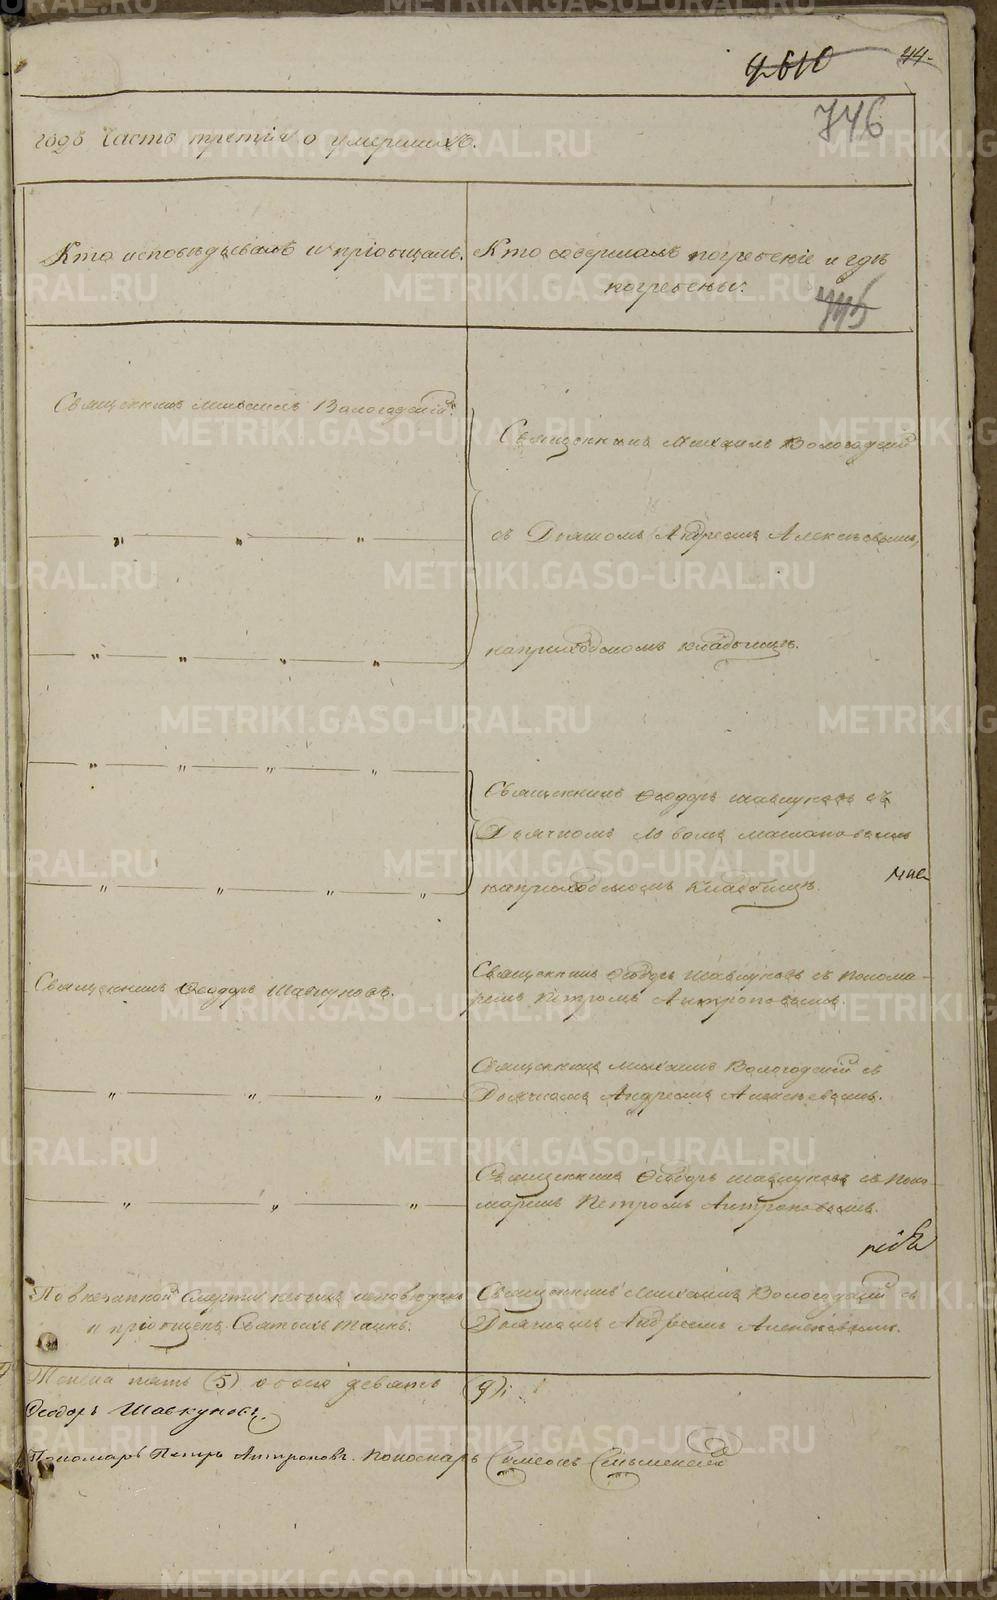 4610 44.
746
годъ Часть третія о умершихъ.
Кто исповѣдывалъ и пріобщалъ.
Кто совершалъ погребеніе и гдѣ
погребены.
745
Священникъ Михаилъ Вологодскій.
Священникъ Михаилъ Вологодскій
съ Дьячкомъ Андреемъ Алексѣевымъ,
на приходскомъ кладбищѣ.
Священникъ Ѳеодоръ Шавкуновъ съ
Дьячкомъ
на приходскомъ кладбищѣ.
Священникъ Ѳеодоръ Шавкуновъ.
Священникъ Ѳеодоръ Шавкуновъ съ понома-
ремъ Петромъ Антроповымъ.
Священникъ Михаилъ Вологодскій съ
Дьячкомъ Андреемъ Алексѣевымъ.
Священникъ Ѳеодоръ Шавкуновъ съ поно-
маремъ Петромъ Антроповымъ.
По внезапной смерти небылъ исповѣданъ
и пріобщенъ Святыхъ Таинъ.
Священникъ Михаилъ Вологодскій съ
Дьячкомъ Андреемъ Алексѣевымъ.
пять (5) обоего девять (9).
Ѳеодоръ Шавкуновъ.
Пономарь Петръ Антроповъ. Пономарь Симеонъ
METRIKI.GASO-URAL.RU